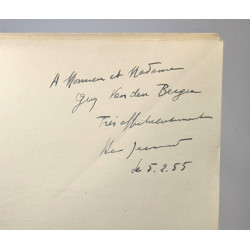 A Monsieur et Madame
Guy Van den Bergen
Très affectueusement
le 5.2.55